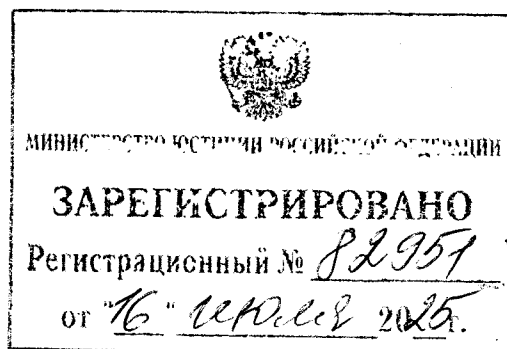 МИНИСТЕРСТВО ЮСТИЦИИ РОССИЙСКОЙ ФЕДЕРАЦИИ
ЗАРЕГИСТРИРОВАНО
Регистрационный № 82951
от "16" июля 2025г.